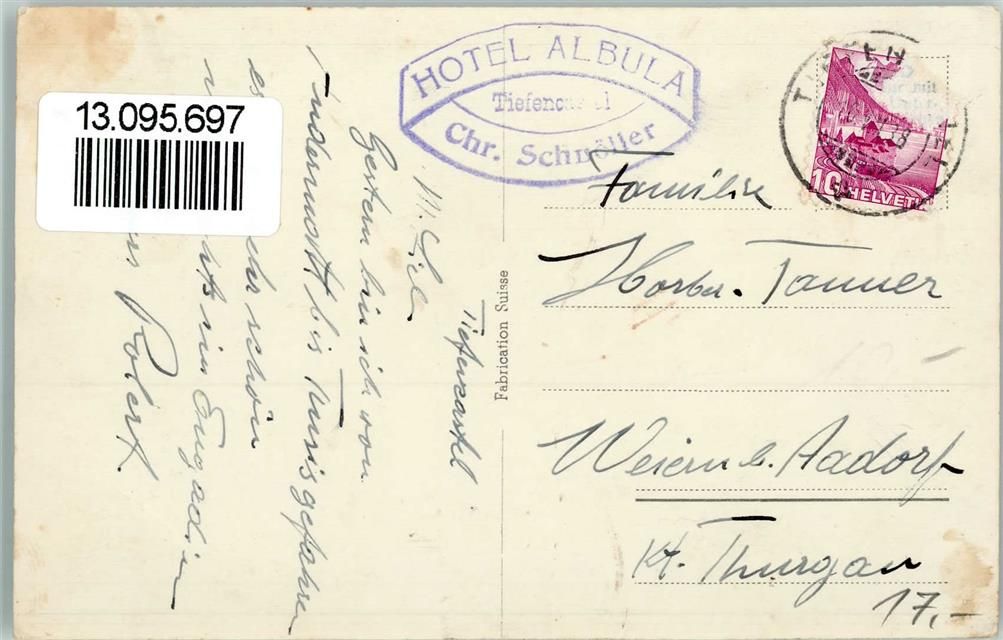 13.095.697
HOTEL ALBULA
Tiefencastel
Chr. Schmöller
10
HELVETIA
Tiefencastel
M. Liel
Gestern bin ich von
Andermatt bis Tusis gefahren
es sehr schön
ins Engadin
Robert.
Fabrication Suisse
Familie
Horber-Tanner
Weiern b. Aadorf
Kt. Thurgau
17,-